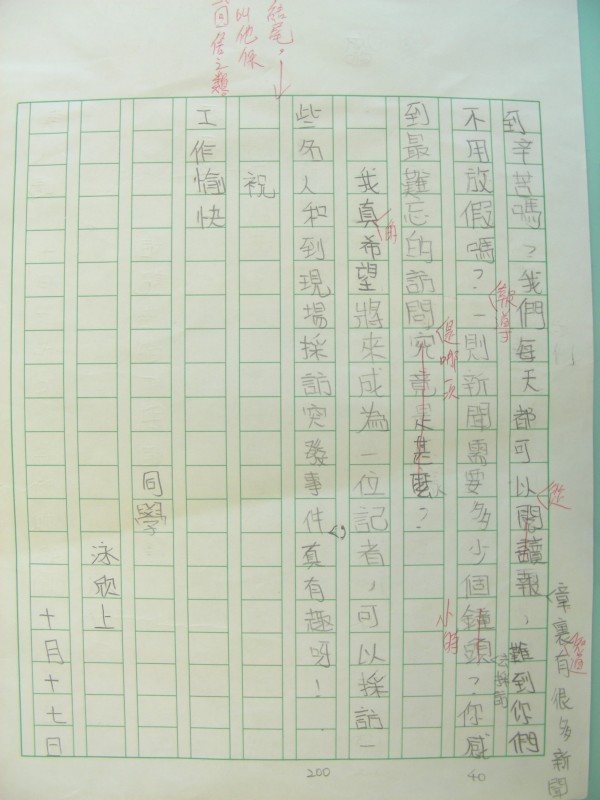 到辛苦嗎？我們每天都可以閱讀報，難到你們
從
章裏有很多新聞
報導
不用放假嗎？一則新聞需要多少個鐘頭？你感
小時
去採訪
到最難忘的訪問究竟是甚麼？
是哪次
我真希望將來成為一位記者，可以採訪一
些名人和到現場採訪突發事件真有趣呀！
結尾，
叫他保
回信之類
祝
工作愉快
同學
泳欣上
十月十七日
40
200